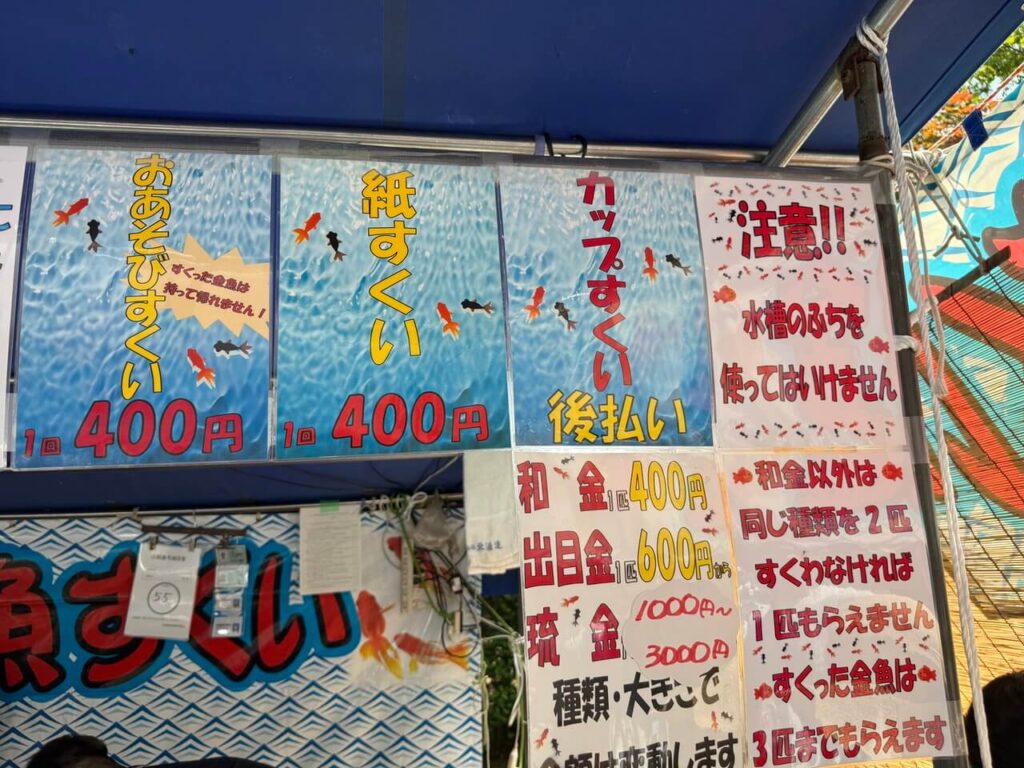 おあそびすくい
すくった金魚は
持って帰れません！
1回400円
紙すくい
1回400円
カップすくい
後払い
和金1匹400円
出目金1匹600円から
琉金 1000円~
3000円
種類・大きさで
金額は変動します
注意!!
水槽のふちを
使ってはいけません
和金以外は
同じ種類を2匹
すくわなければ
1匹もらえません
すくった金魚は
3匹までもらえます
魚すくい
55